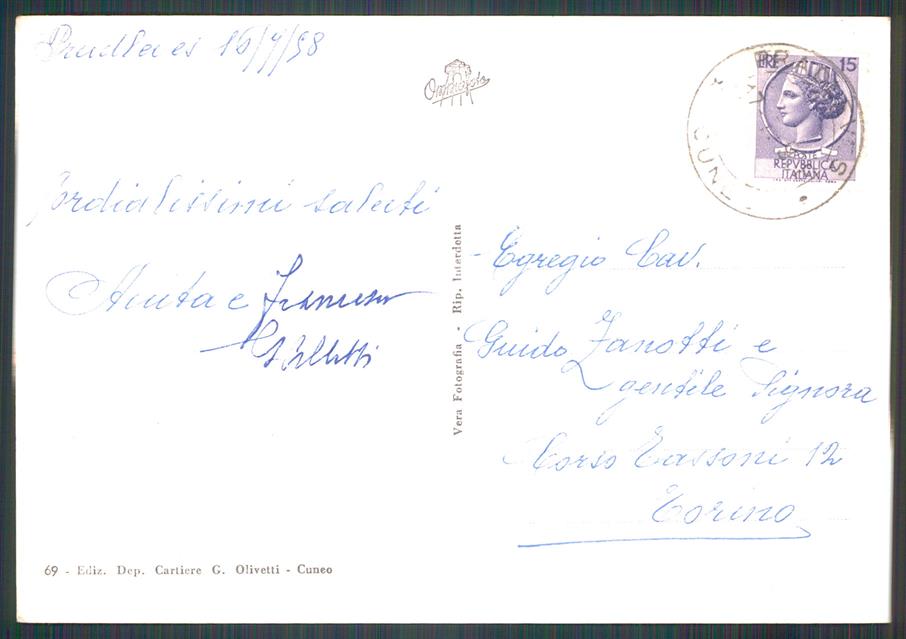 16/7/58
Cordialissimi saluti
Anita e Francesco
LIRE 15
POSTE
REPVBBLICA
ITALIANA
CUNEO
Vera Fotografia - Rip. Interdetta
Egregio Cav.
Guido Zanotti e
gentile Signora
Corso Tassoni 12
Torino
69 - Ediz. Dep. Cartiere G. Olivetti - Cuneo